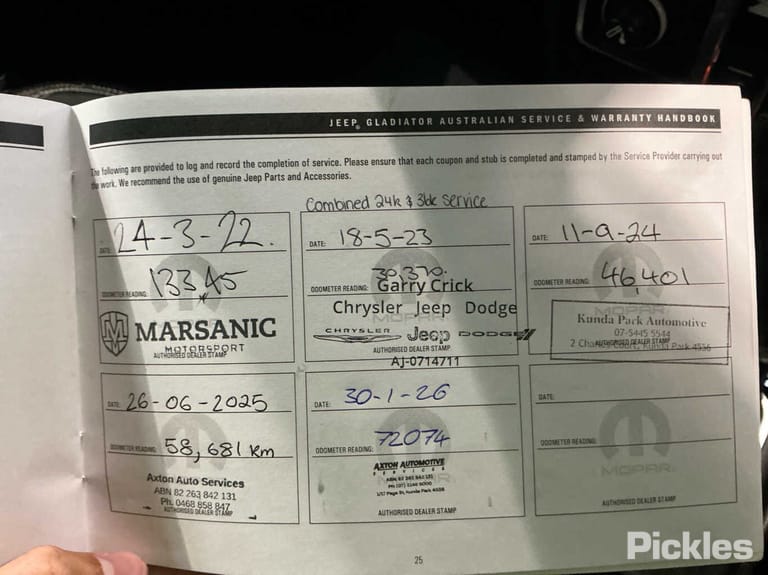 JEEP® GLADIATOR AUSTRALIAN SERVICE & WARRANTY HANDBOOK
The following are provided to log and record the completion of service. Please ensure that each coupon and stub is completed and stamped by the Service Provider carrying out
the work. We recommend the use of genuine Jeep Parts and Accessories.
Combined 24k & 36k Service
DATE: 24-3-22.
ODOMETER READING: 13345
MARSANIC
MOTORSPORT
AUTHORISED DEALER STAMP
DATE: 18-5-23
ODOMETER READING: 30,370.
Garry Crick
Chrysler Jeep Dodge
CHRYSLER Jeep DODGE
AUTHORISED DEALER STAMP
AJ-0714711
DATE: 11-9-24
ODOMETER READING: 46,401
MOPAR
Kunda Park Automotive
07-5445 5544
2 Court, Kunda Park 4556
AUTHORISED DEALER STAMP
DATE: 26-06-2025
ODOMETER READING: 58,681 km
Axton Auto Services
ABN 82 263 842 131
Ph. 0468 858 847
AUTHORISED DEALER STAMP
DATE: 30-1-26
ODOMETER READING: 72074
AXTON AUTOMOTIVE
SERVICES
ABN 82 263 842 131
1/17 Page St, Kunda Park 4556
AUTHORISED DEALER STAMP
DATE:
ODOMETER READING:
MOPAR
AUTHORISED DEALER STAMP
25
Pickles